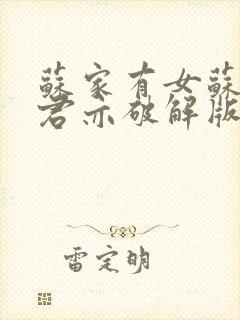 蘇家有女蘇
君亦破解版
雷定明